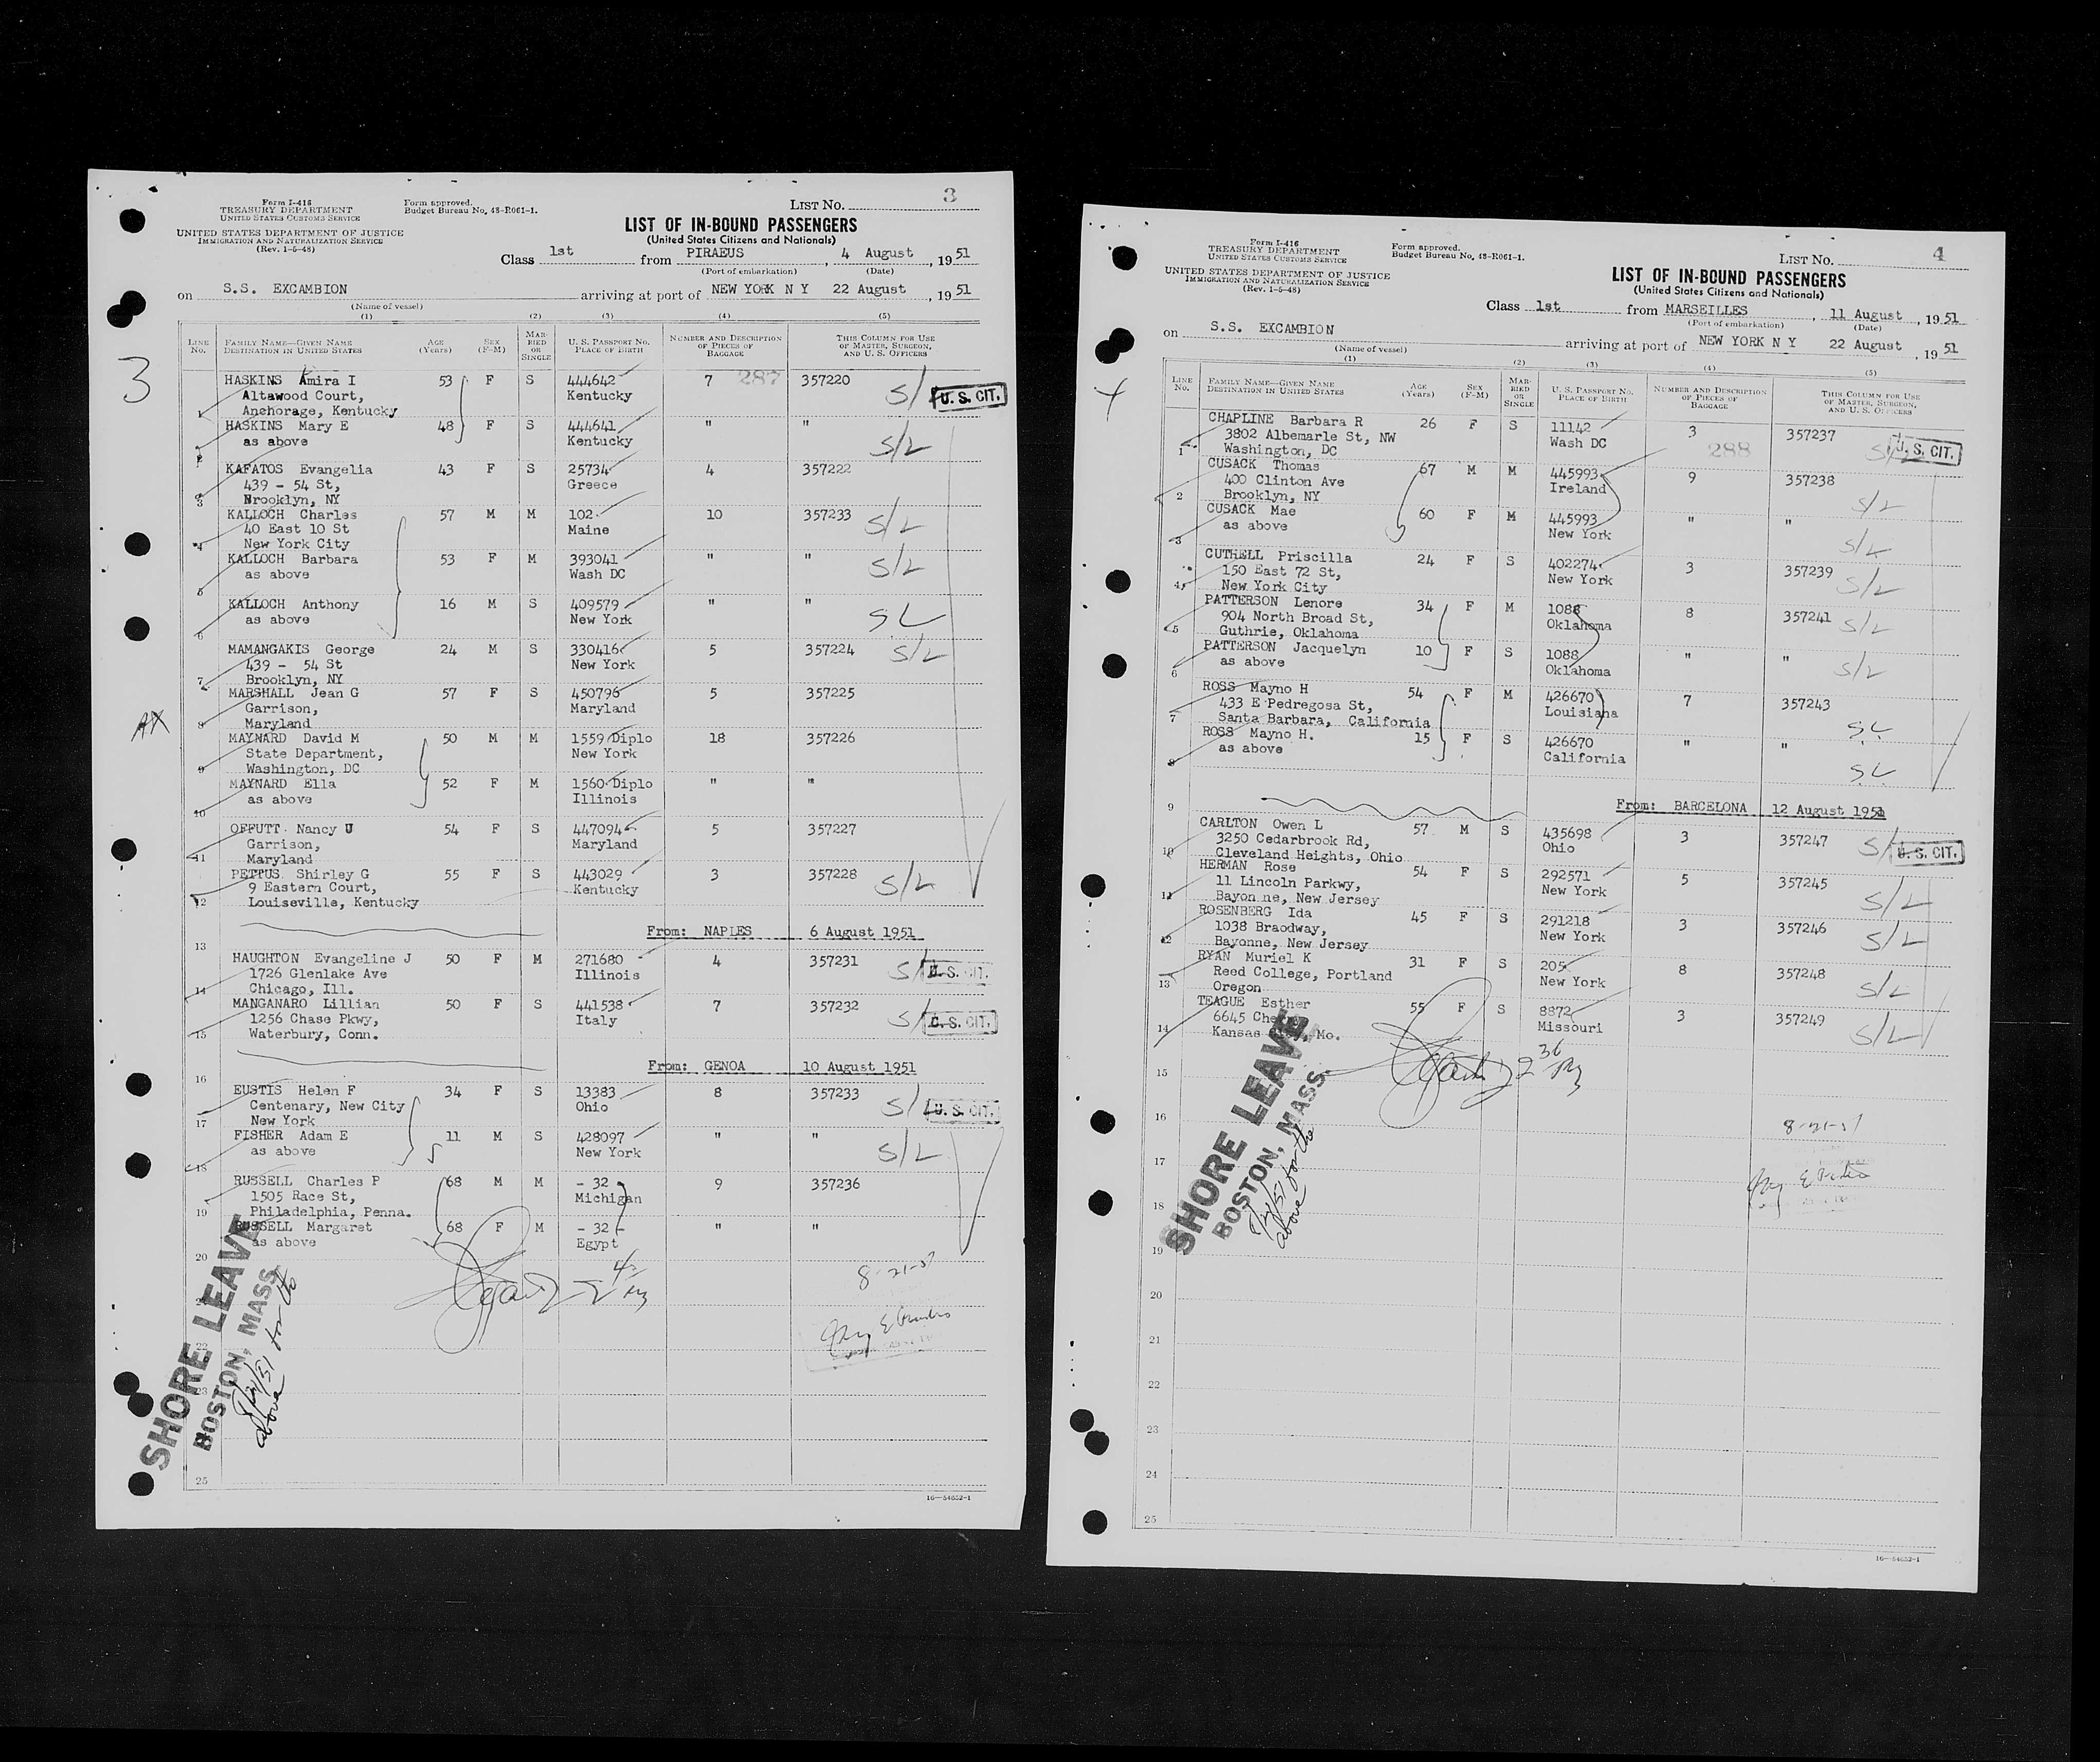 3
Form I-416
TREASURY DEPARTMENT
UNITED STATES CUSTOMS SERVICE
UNITED STATES DEPARTMENT OF JUSTICE
IMMIGRATION AND NATURALIZATION SERVICE
(Rev. 1-5-48)
Form approved.
Budget Bureau No. 48-R061-1.
LIST No. 3
LIST OF IN-BOUND PASSENGERS
(United States Citizens and Nationals)
Class 1st from PIRAEUS, 4 August, 1951
(Port of embarkation) (Date)
on S.S. EXCAMBION arriving at port of NEW YORK N Y 22 August, 1951
(Name of vessel)
(1) (2) (3) (4) (5)
LINE No. FAMILY NAME—GIVEN NAME DESTINATION IN UNITED STATES AGE (Years) SEX (F-M) MARRIED OR SINGLE U. S. PASSPORT No. PLACE OF BIRTH NUMBER AND DESCRIPTION OF PIECES OF BAGGAGE THIS COLUMN FOR USE OF MASTER, SURGEON, AND U. S. OFFICERS
287
HASKINS Amira I 53 F S 444642 7 357220 S/L U. S. CIT.
Altawood Court, Kentucky
1 Anchorage, Kentucky
HASKINS Mary E 48 F S 444641 " " S/L
2 as above Kentucky
KAFATOS Evangelia 43 F S 25734 4 357222
439 - 54 St, Greece
3 Brooklyn, NY
KALLOCH Charles 57 M M 102 10 357233 S/L
40 East 10 St Maine
4 New York City
KALLOCH Barbara 53 F M 393041 " " S/L
as above Wash DC
5
KALLOCH Anthony 16 M S 409579 " " SL
as above New York
6
MAMANGAKIS George 24 M S 330416 5 357224 S/L
439 - 54 St New York
7 Brooklyn, NY
MARSHALL Jean G 57 F S 450796 5 357225
Garrison, Maryland
8 Maryland
AX
MAYNARD David M 50 M M 1559 Diplo 18 357226
State Department, New York
9 Washington, DC
MAYNARD Ella 52 F M 1560 Diplo " "
as above Illinois
10
OFFUTT Nancy U 54 F S 447094 5 357227
Garrison, Maryland
11 Maryland
PETTUS Shirley G 55 F S 443029 3 357228 S/L
9 Eastern Court, Kentucky
12 Louiseville, Kentucky
From: NAPLES 6 August 1951
13
HAUGHTON Evangeline J 50 F M 271680 4 357231 S/L U. S. CIT.
1726 Glenlake Ave Illinois
14 Chicago, Ill.
MANGANARO Lillian 50 F S 441538 7 357232 S/L U. S. CIT.
1256 Chase Pkwy, Italy
15 Waterbury, Conn.
From: GENOA 10 August 1951
16
EUSTIS Helen F 34 F S 13383 8 357233 S/L U. S. CIT.
Centenary, New City Ohio
17 New York
FISHER Adam E 11 M S 428097 " " S/L
as above New York
18
RUSSELL Charles P 68 M M - 32 9 357236
1505 Race St, Michigan
19 Philadelphia, Penna.
RUSSELL Margaret 68 F M - 32 - " "
as above Egypt
20
8-21-51
22
23
25
SHORE LEAVE
BOSTON, MASS.
for the
above
16—54652-1
4
Form I-416
TREASURY DEPARTMENT
UNITED STATES CUSTOMS SERVICE
UNITED STATES DEPARTMENT OF JUSTICE
IMMIGRATION AND NATURALIZATION SERVICE
(Rev. 1-5-48)
Form approved.
Budget Bureau No. 48-R061-1.
LIST No. 4
LIST OF IN-BOUND PASSENGERS
(United States Citizens and Nationals)
Class 1st from MARSEILLES, 11 August, 1951
(Port of embarkation) (Date)
on S.S. EXCAMBION arriving at port of NEW YORK N Y 22 August, 1951
(Name of vessel)
(1) (2) (3) (4) (5)
LINE No. FAMILY NAME—GIVEN NAME DESTINATION IN UNITED STATES AGE (Years) SEX (F-M) MARRIED OR SINGLE U. S. PASSPORT No. PLACE OF BIRTH NUMBER AND DESCRIPTION OF PIECES OF BAGGAGE THIS COLUMN FOR USE OF MASTER, SURGEON, AND U. S. OFFICERS
CHAPLINE Barbara R 26 F S 11142 3 357237 S/L U. S. CIT.
3802 Albemarle St, NW Wash DC 288
1 Washington, DC
CUSACK Thomas 67 M M 445993 9 357238 S/L
400 Clinton Ave Ireland
2 Brooklyn, NY
CUSACK Mae 60 F M 445993 " " S/L
as above New York
3
CUTHELL Priscilla 24 F S 402274 3 357239 S/L
150 East 72 St, New York
4 New York City
PATTERSON Lenore 34 F M 1088 8 357241 S/L
904 North Broad St, Oklahoma
5 Guthrie, Oklahoma
PATTERSON Jacquelyn 10 F S 1088 " " S/L
as above Oklahoma
6
ROSS Mayno H 54 F M 426670 7 357243 SL
433 E Pedregosa St, Louisiana
7 Santa Barbara, California
ROSS Mayno H. 15 F S 426670 " " SL
as above California
8
9 From: BARCELONA 12 August 1951
CARLTON Owen L 57 M S 435698 3 357247 S/L U. S. CIT.
3250 Cedarbrook Rd, Ohio
10 Cleveland Heights, Ohio
HERMAN Rose 54 F S 292571 5 357245 S/L
11 Lincoln Parkwy, New York
11 Bayon ne, New Jersey
ROSENBERG Ida 45 F S 291218 3 357246 S/L
1038 Braodway, New York
12 Bayonne, New Jersey
RYAN Muriel K 31 F S 205 8 357248 S/L
Reed College, Portland New York
13 Oregon
TEAGUE Esther 55 F S 8872 3 357249 S/L
6645 Missouri
14 Kansas Mo.
15
16 8-21-51
17
18
19
20
21
22
23
24
25
SHORE LEAVE
BOSTON, MASS.
for the
above
16—54652-1